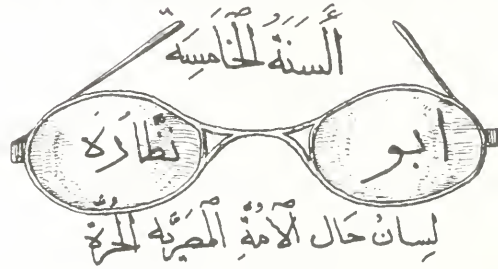 السنة الخامسة
ابو نظارة
لسان حال الأمة المصرية الحرة